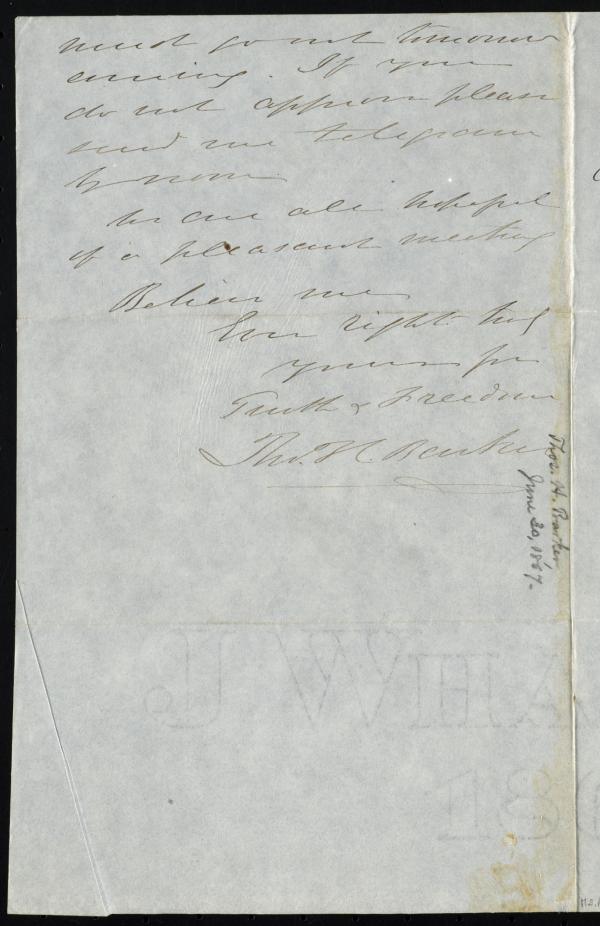 must go out tomorrow
evening. If you
do not approve please
send me telegram
by noon
We are all hopeful
of a pleasant meeting
Believe me
Ever right truly
yours for
Truth & Freedom
Thos. H. Barker
Thos. H. Barker
June 20, 1867.